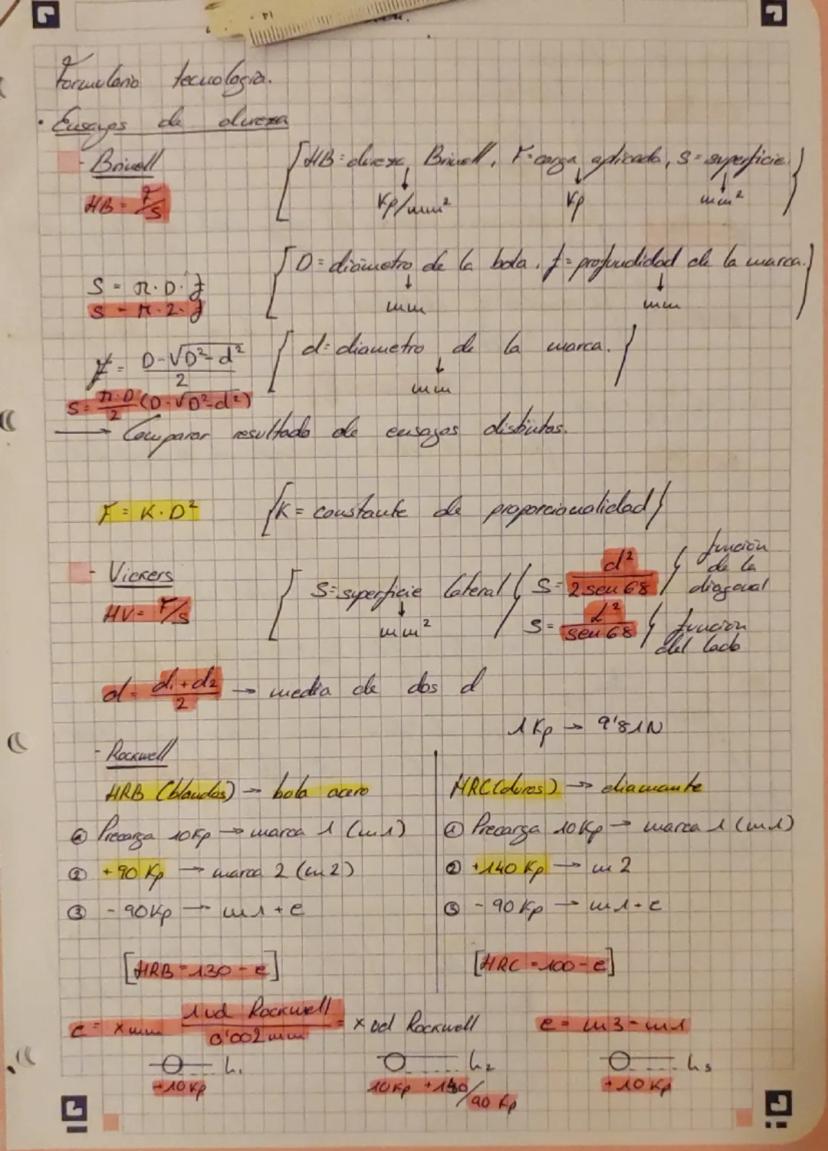 Formulario tecnología.
· Ensayos de dureza
- Brinell
HB = F/S
[HB = dureza Brinell, F = carga aplicada, S = superficie.}
Kp/mm² Kp mm²
S = π · D · f
S = π · 2 · f
[D = diámetro de la bola. f = profundidad de la marca.}
mm mm
f = (D - √D² - d²)/2
[d = diametro de la marca.}
mm
S = π·D/2 (D - √D² - d²)
→ Comparar resultado de ensayos distintos.
F = K · D²
[K = constante de proporcionalidad}
- Vickers
HV = F/S
[S = superficie lateral
mm²
S = d²/2 sen 68 } función de la diagonal
S = L²/sen 68 } función del lado
d = d1 + d2/2 → media de dos d
1 Kp → 9'81 N
- Rockwell
HRB (blandos) → bola acero
① Precarga 10 Kp → marca 1 (m1)
② +90 Kp → marca 2 (m2)
③ - 90 Kp → m1 + e
[HRB = 130 - e]
HRC (duros) → diamante
① Precarga 10 Kp → marca 1 (m1)
② +140 Kp → m2
③ - 90 Kp → m1 + e
[HRC = 100 - e]
e = x mm 1 ud Rockwell/0'002 mm = x ud Rockwell
e = m3 - m1
h₁
+10 Kp
h₂
10 Kp + 140/90 Kp
h₃
+10 Kp